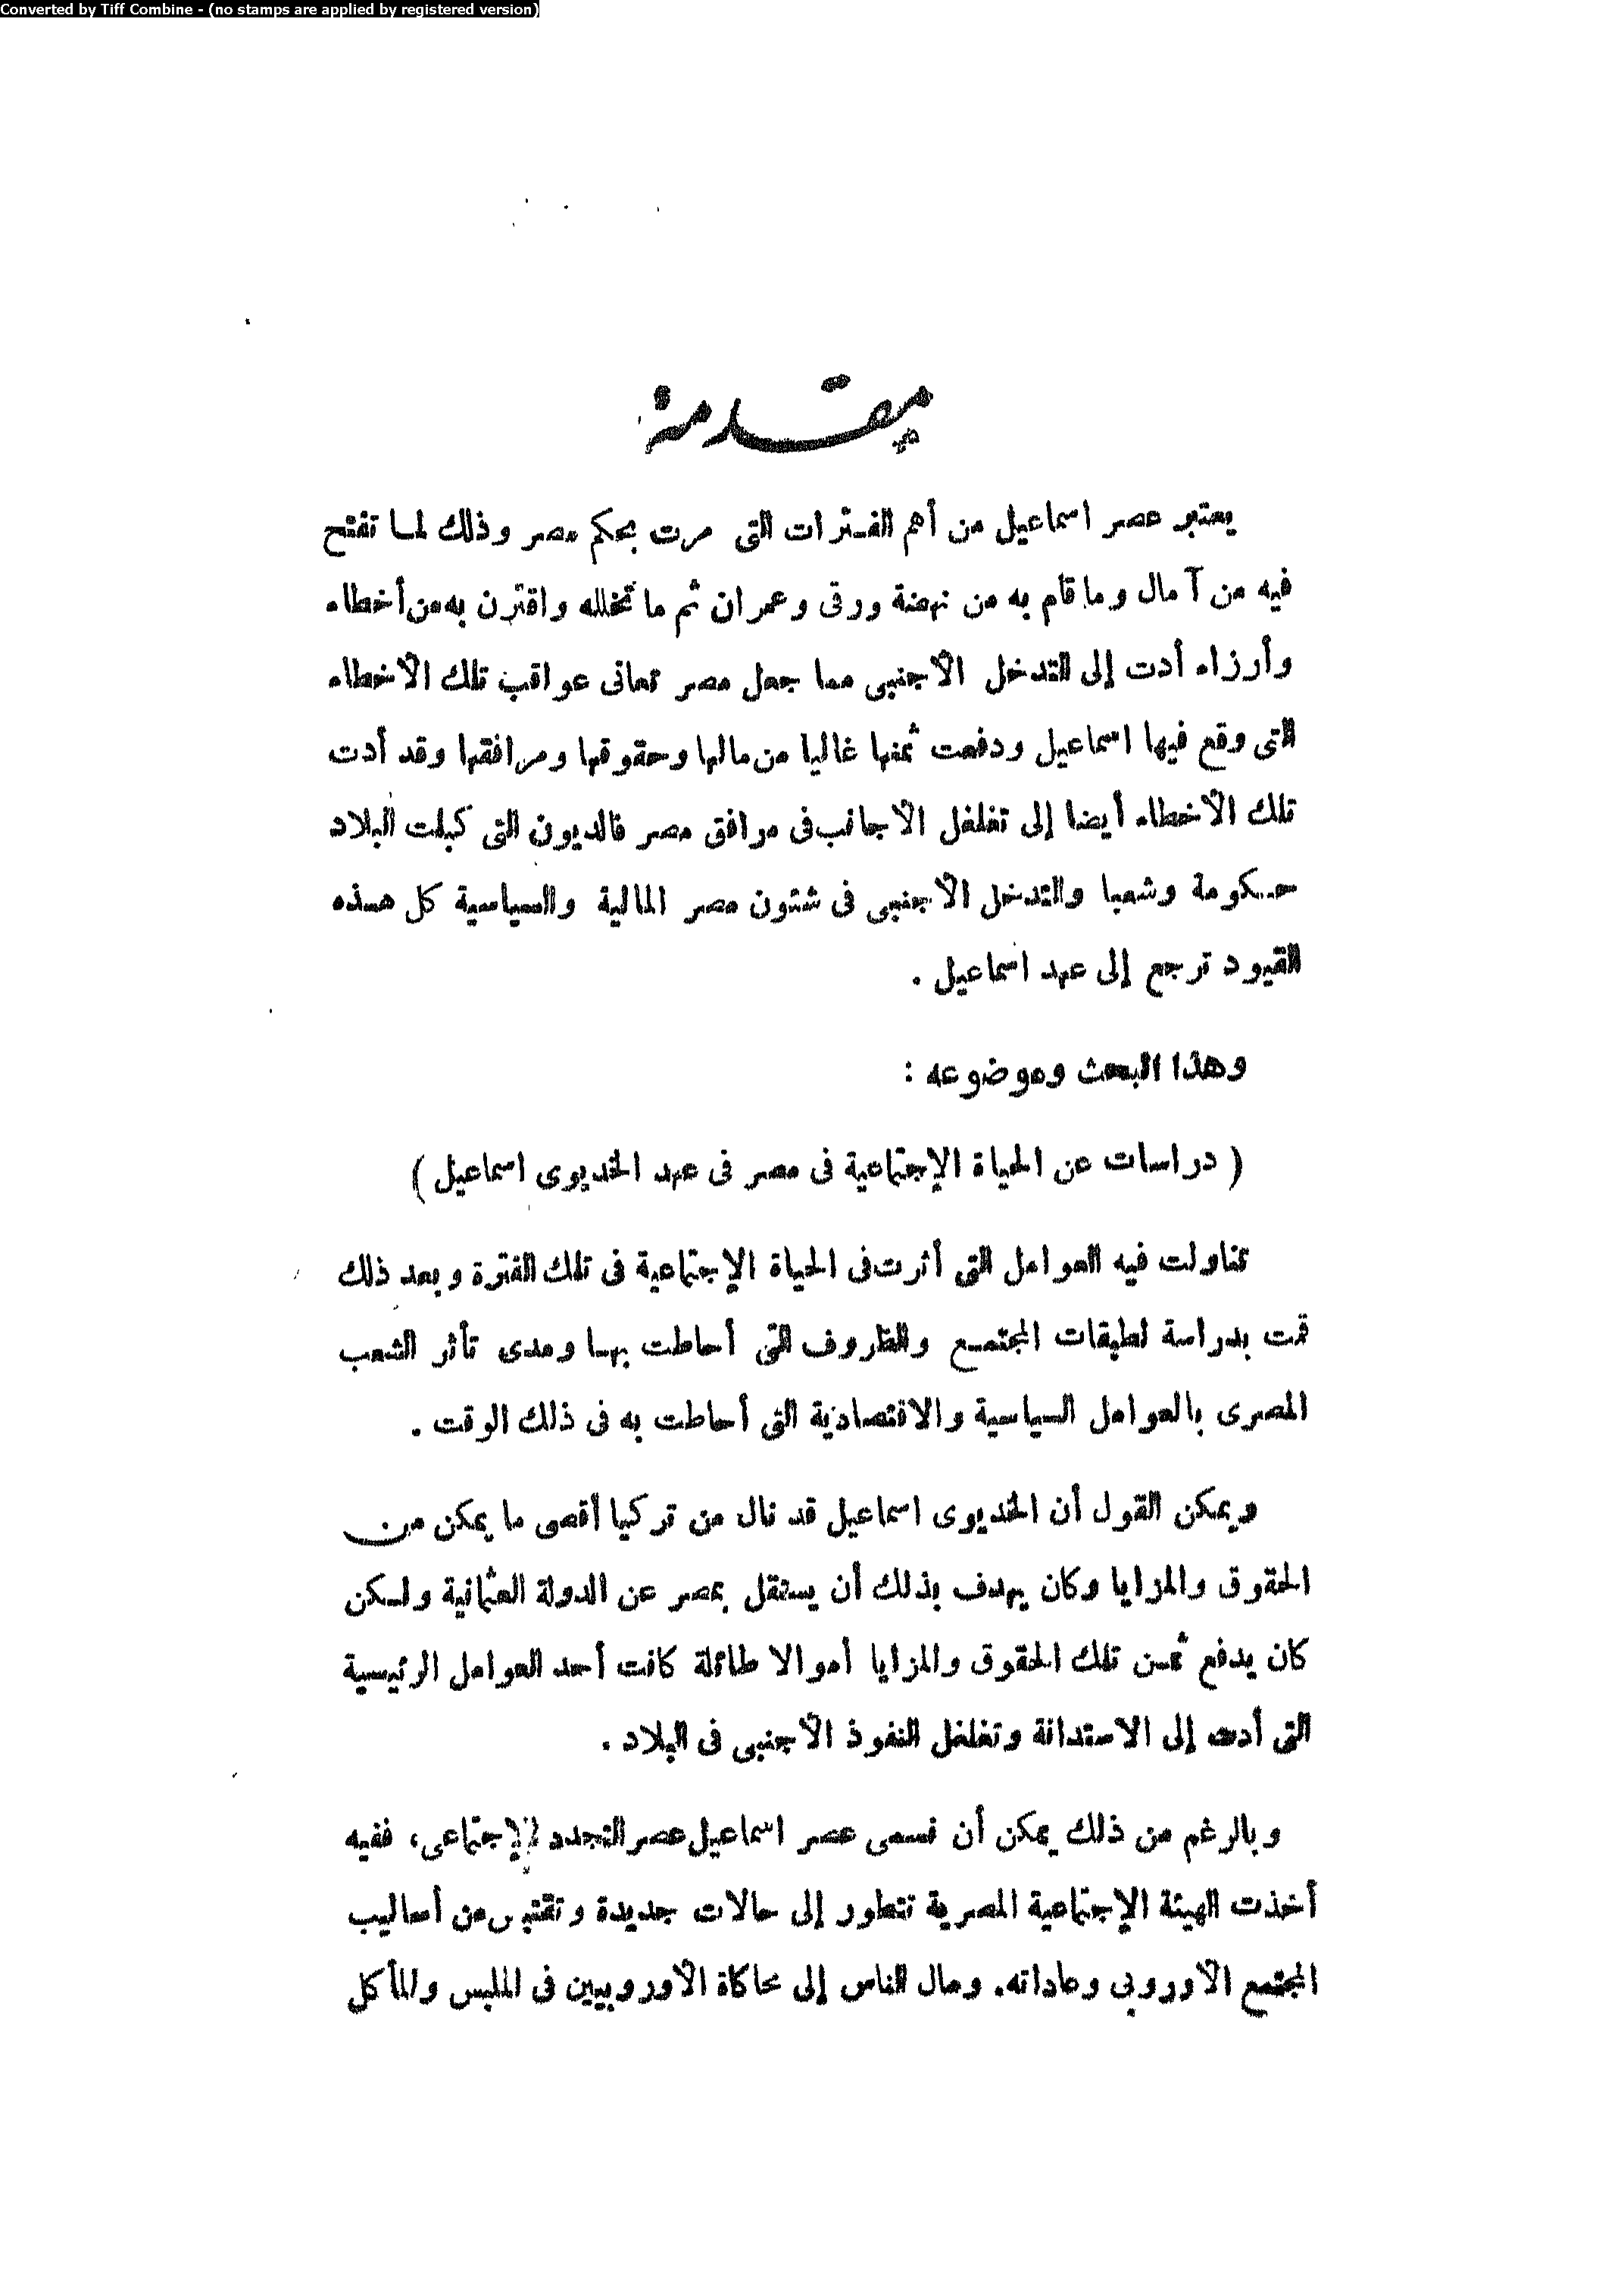 Converted by Tiff Combine - (no stamps are applied by registered version)
مقدمة
يعتبر عصر اسماعيل من أهم الفترات التى مرت بحكم مصر وذلك لما تفتح
فيه من آمال وما قام به من نهضة ورقى وعمران ثم ما تخلله واقترن به من أخطاء
وأرزاء أدت إلى التدخل الأجنبى مما جعل مصر تعانى عواقب تلك الأخطاء
التى وقع فيها اسماعيل ودفعت ثمنها غاليا من مالها وحقوقها ومرافقها وقد أدت
تلك الأخطاء أيضا إلى تغلغل الاجانب فى مرافق مصر فالديون التى كبلت البلاد
حكومة وشعبا والتدخل الأجنبى فى شئون مصر المالية والسياسية كل هذه
القيود ترجع إلى عهد اسماعيل .
وهذا البحث وموضوعه :
( دراسات عن الحياة الإجتماعية فى مصر فى عهد الخديوى اسماعيل )
تناولت فيه العوامل التى أثرت فى الحياة الإجتماعية فى تلك الفترة وبعد ذلك
قمت بدراسة لطبقات المجتمع والظروف التى أحاطت بها ومدى تأثر الشعب
المصرى بالعوامل السياسية والاقتصادية التى أحاطت به فى ذلك الوقت .
ويمكن القول أن الخديوى اسماعيل قد نال من تركيا أقصى ما يمكن من
الحقوق والمزايا وكان يهدف بذلك أن يستقل بمصر عن الدولة العثمانية ولكن
كان يدفع ثمن تلك الحقوق والمزايا أموالا طائلة كانت أحد العوامل الرئيسية
التى أدت إلى الاستدانة وتغلغل النفوذ الأجنبى فى البلاد .
وبالرغم من ذلك يمكن أن نسمى عصر اسماعيل عصر التجدد الإجتماعى، ففيه
أخذت الهيئة الإجتماعية المصرية تتطور إلى حالات جديدة وتقتبس من أساليب
المجتمع الأوروبى وعاداته. ومال الناس إلى محاكاة الأوروبيين فى الملبس والمأكل